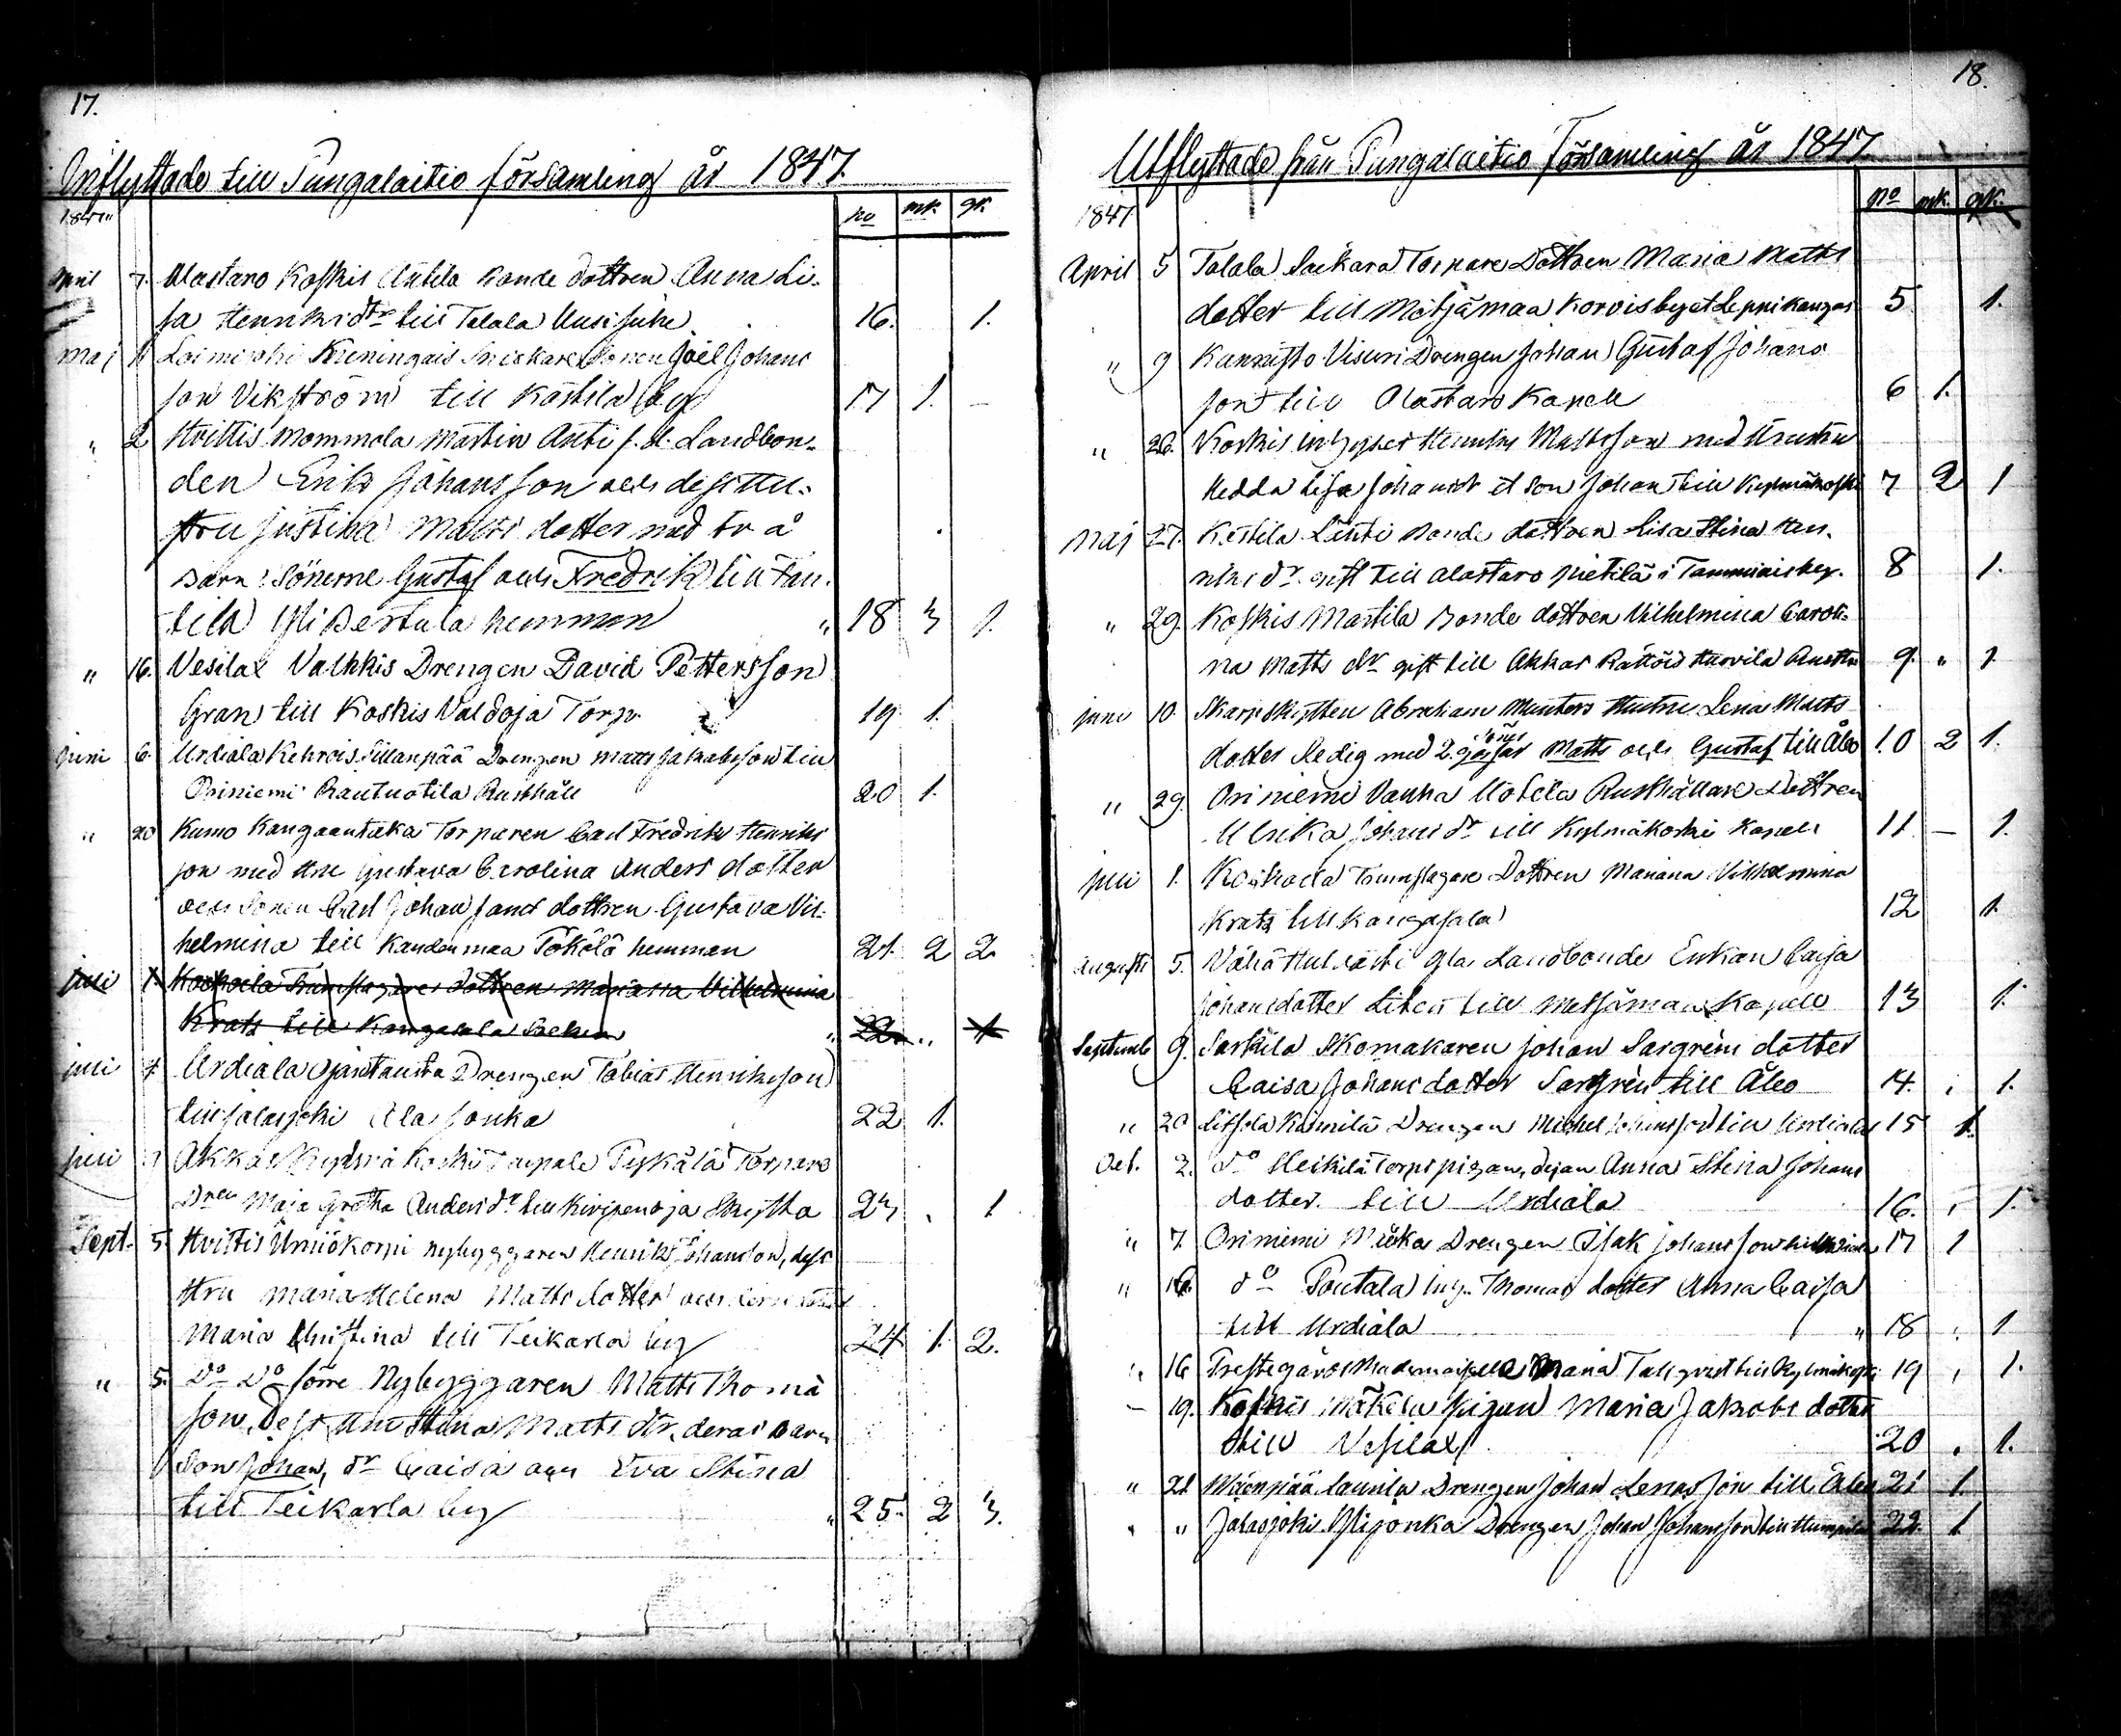 17.
Inflyttade till Pungalaitio församling år 1847.
1847 no mk. qk.
April 7. Alastaro Koskis Anttila Bonde dottren Anna Li-
sa Henriksdtr till Talala Uusi juhe. 16. 1.
Maj 1. Loimijoki Kuningais Snickare Sonen Joel Johans
son Vikström till Kåstila by 17 1. –
„ 2 Hvittis Mommola Martin Antti f. d. Landbon-
den Erik Johansson och dess Hu-
stru Justina Matts dotter med två
Barn: Sönerne Gustaf och Fredrik till Tan-
tila Yli Sertula hemman „ 18 3 1.
„ 16. Vesilax Valkkis Drengen David Pettersson
Gran till Koskis Valdoja Torp. 19 1.
juni 6. Urdiala Kehrois Sillanpää Drengen Matts Jakobsson till
Oriniemi Rautuotila Rusthåll 20 1.
„ 20 Kumo Kangaantaka Torparen Carl Fredrik Henriks
son med Hu Gustava Carolina Anders dotter
och Sonen Carl Johan samt dottren Gustava Vil-
helmina till Kandenmaa Tökölä hemman 21. 2 2
juli 1. Koskoela Trumslagares dottren Mariana Vilhelmina
Kratz till Kangasala Socken „ 22. „ 1
juli 4 Urdiala Ojantausta Drengen Tobias Henriksson
till Jalasjoki Ala Jonka 22 1.
juli Akkas Kylmäkoski Taipale Pyskälä Torpare
Dren Maja Gretha Anders dr till Kivisenoja Skytta 23 „ 1
Sept. 5. Hvittis Urmiökorpi nybyggaren Henrik Johansson, dess
Hru Maria Helena Matts dotter och deras
Maria Christina till Teikarla by 24 1. 2.
„ 5. Do Do förre Nybyggaren Matts Thomas
son, Dess Hru Stina Matts dtr, deras Barn
Son Johan, dr Caisa och Eva Stina
till Teikarla by „ 25. 2 3.
18.
Utflyttade från Pungalaitio Församling år 1847.
1847 No mk. qk.
April 5 Talala Saikara Torpare Dottren Maria Matts
dotter till Metsämaa Korvis by et Leppikangas 5 1.
„ 9 Kannisto Visuri Drengen Johan Gustaf Johans
son till Alastaro Kapell 6 1.
„ 26. Koskis inhyses Henrik Mattsson med Hustru
Hedda Lisa Johansdr et son Johan till Kylmäkoski 7 2 1
Maj 27. Kåstila Lähti Bonde dottren Lisa Stina Hen-
riks dr. gift till Alastaro Pietilä i Tammiais by. 8 1.
„ 29. Koskis Martila Bonde dottren Vilhelmina Caroli-
na Matts dr gift till Akkas Kattois Hurvila Rustha 9. „ 1.
juni 10. Skarpskytten Abraham Munters Hustru Lena Matts
dotter Ledig med 2. gossar söner Matts och Gustaf till Åbo 10 2 1.
„ 29. Oriniemi Vanha Uotila Rusthållare Dottren
Ulrika Johans dr till Kylmäkoski Kapell 11 – 1.
juli 1. Koskoela Trumslagare Dottren Mariana Vilhelmina
Kratz till Kangasala 12 1.
Augusti 5. Vähä Hulväsi Gla Landbonde Enkan Caisa
Johansdotter Liten till Metsämaa Kapell 13 1.
Septemb 9. Sarkila Skomakaren Johan Sargrens dotter
Caisa Johans dotter Sargren till Åbo 14. „ 1.
„ 20 Litsola Kannila Drengen Michel Johansson till Urdiala 15 1.
Oct. 2. do Heikilä Torps pigan, Dejan Anna Stina Johans
dotter. till Urdiala 16. „ 1.
„ 7. Oriniemi Mäka Drengen Isak Johansson till Urdiala 17 1
„ 16. do Soutala inh. Thomas dotter Anna Caisa
till Urdiala „ 18 „ 1
„ 16 Prestegårds Mademoiselle Maria Tallqvist till Kylmäkoski 19 „ 1.
– 19. Koskis Mäkelä pigan Maria Jakobs dotter
till Vesilax 20 „ 1.
„ 21 Mäenpää Launila Drengen Johan Lenasson till Åbo 21 1.
„ „ Jalasjoki Yli jonka Drengen Johan Johansson till Humpila 22. 1